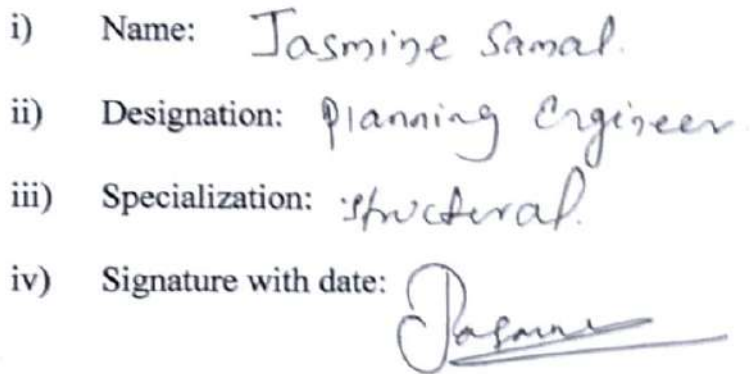 i) Name: Jasmine Samal.
ii) Designation: Planning Engineer.
iii) Specialization: structural.
iv) Signature with date: Jasmine